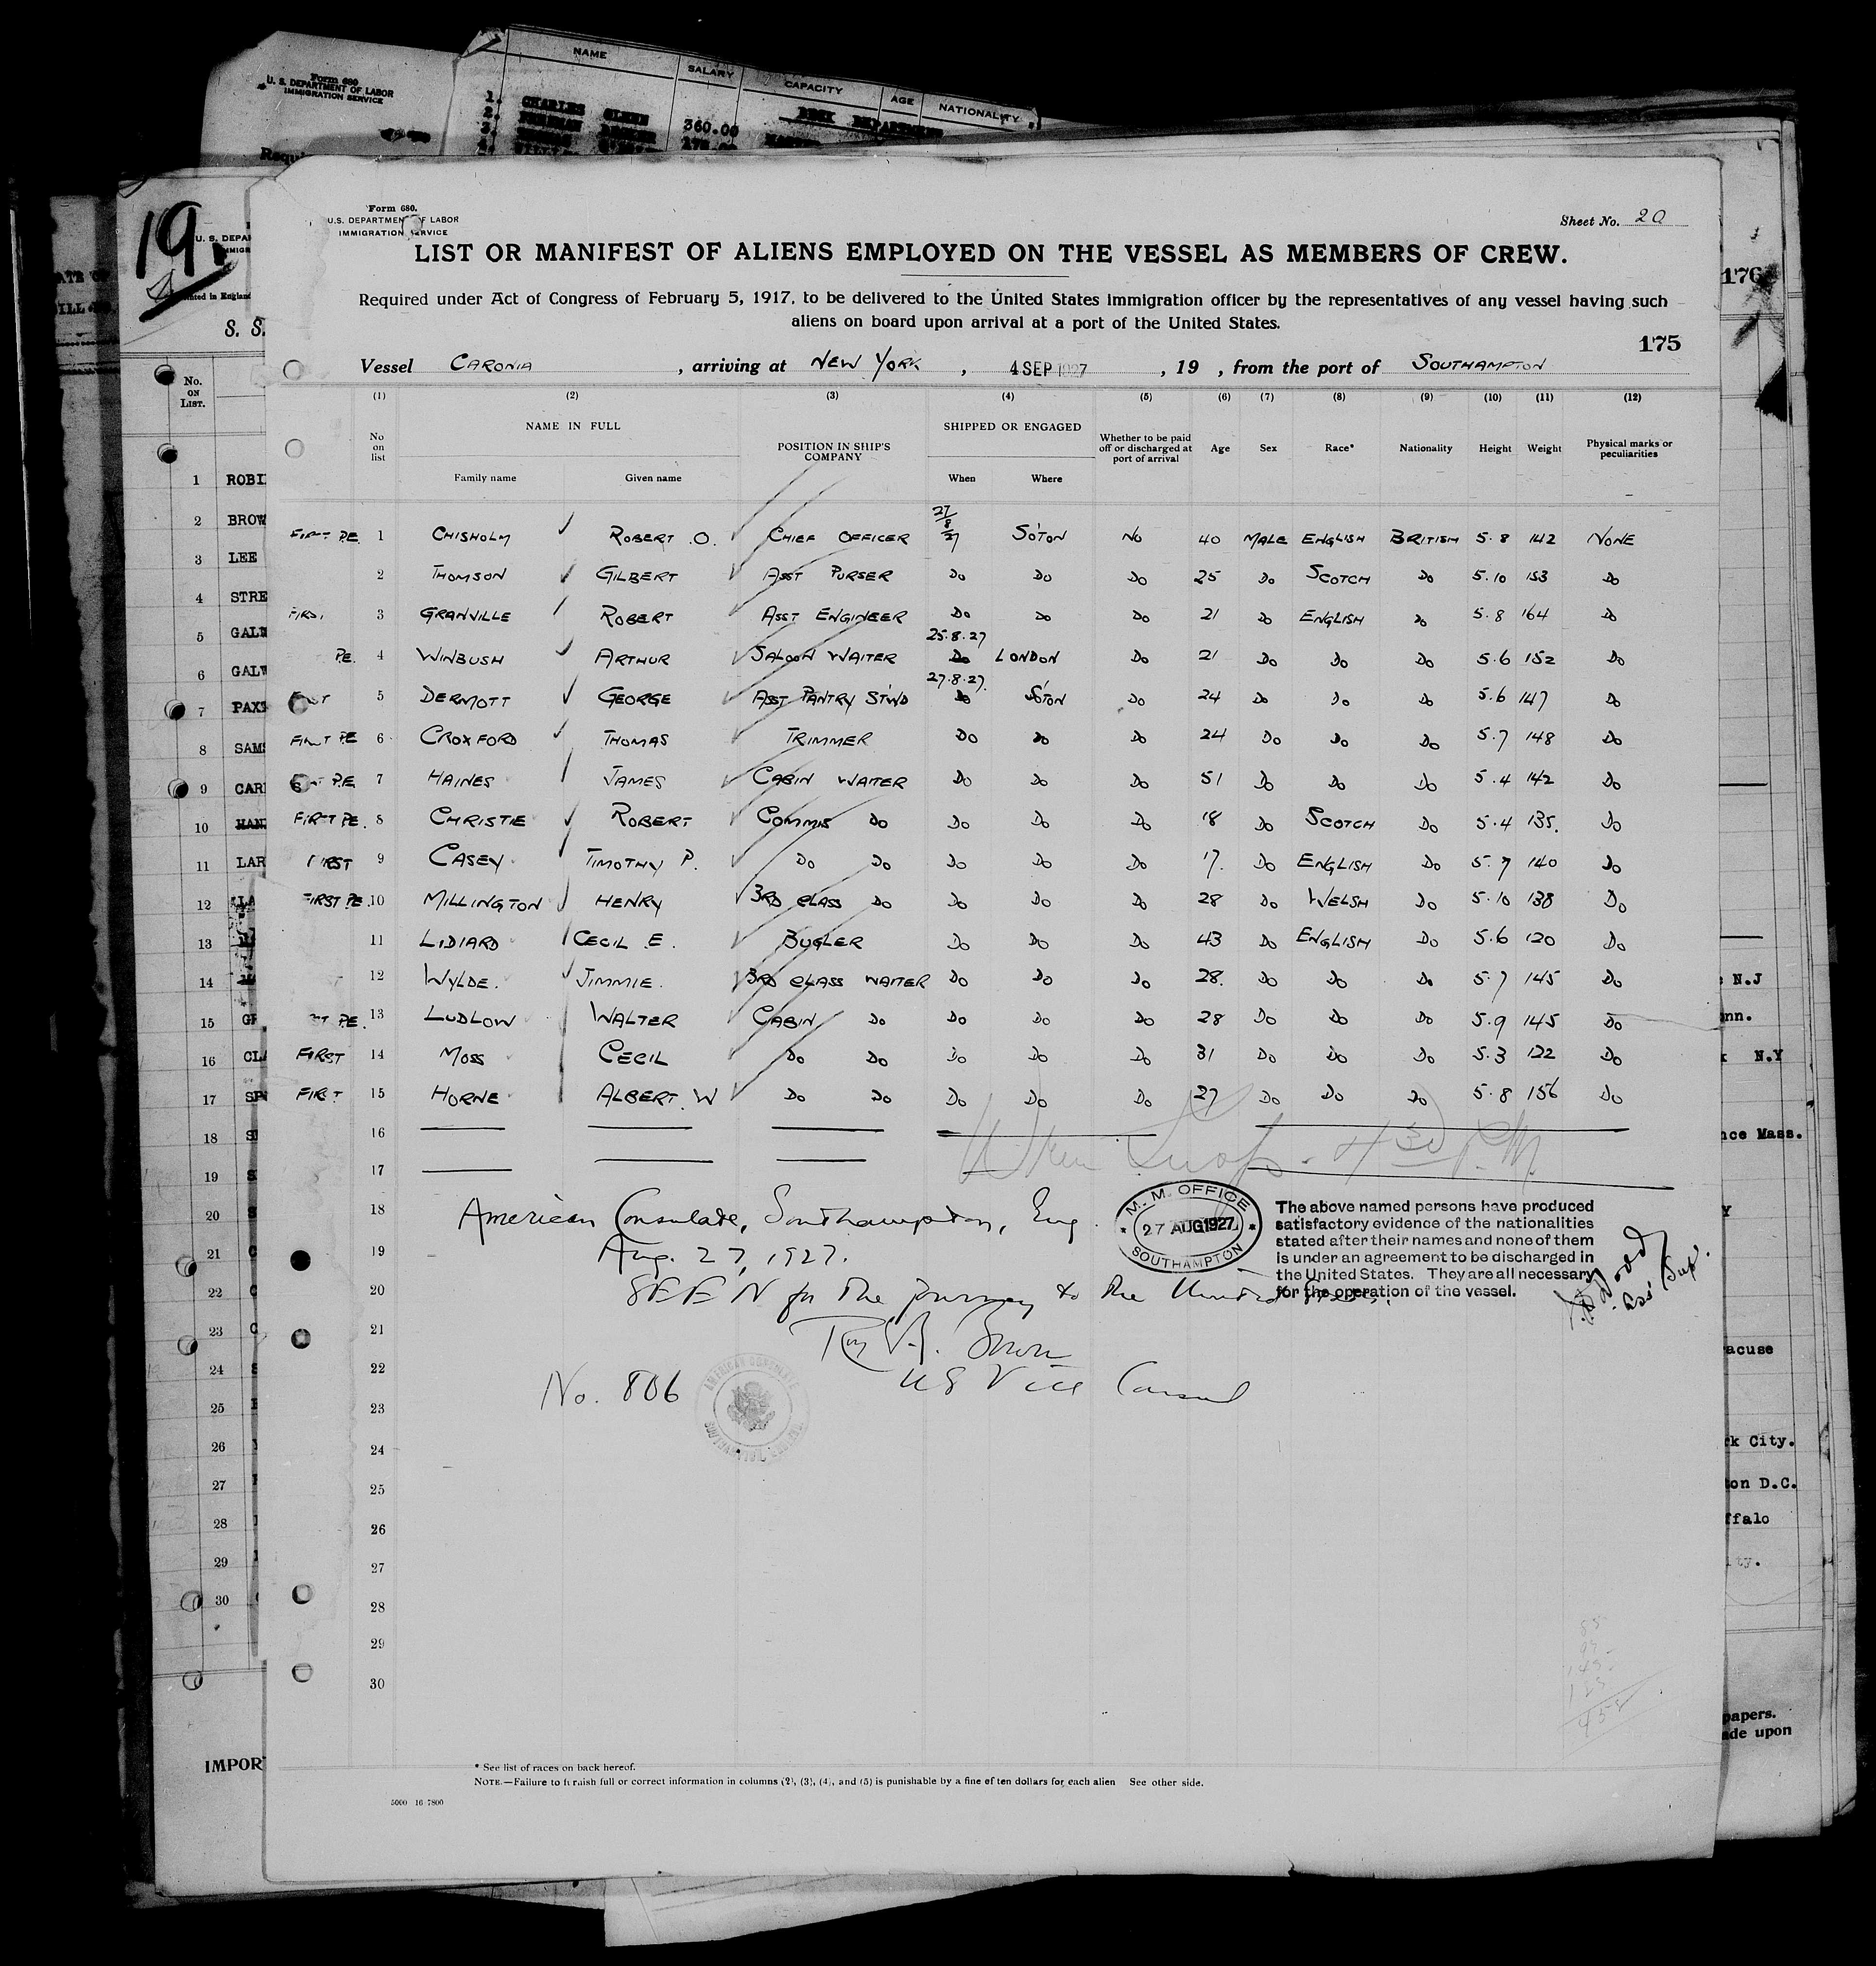 Form 680
U. S. DEPARTMENT OF LABOR
IMMIGRATION SERVICE
NAME SALARY CAPACITY AGE NATIONALITY
1. CHARLES 360.00 DECK DEPARTMENT
2.
3.
19
Form 680.
U.S. DEPARTMENT OF LABOR
IMMIGRATION SERVICE
Sheet No. 20
LIST OR MANIFEST OF ALIENS EMPLOYED ON THE VESSEL AS MEMBERS OF CREW.
Required under Act of Congress of February 5, 1917, to be delivered to the United States immigration officer by the representatives of any vessel having such
aliens on board upon arrival at a port of the United States.
175
176
Vessel CARONIA, arriving at NEW YORK, 4 SEP 1927, 19 , from the port of SOUTHAMPTON
(1) (2) (3) (4) (5) (6) (7) (8) (9) (10) (11) (12)
No on list NAME IN FULL Family name Given name POSITION IN SHIP'S COMPANY SHIPPED OR ENGAGED When Where Whether to be paid off or discharged at port of arrival Age Sex Race* Nationality Height Weight Physical marks or peculiarities
FIRST P.E. 1 CHISHOLM ROBERT .O. CHIEF OFFICER 27/8/27 S'TON NO 40 MALE ENGLISH BRITISH 5.8 142 NONE
2 THOMSON GILBERT ASST PURSER DO DO DO 25 DO SCOTCH DO 5.10 153 DO
FIRST 3 GRANVILLE ROBERT ASST ENGINEER DO DO DO 21 DO ENGLISH DO 5.8 164 DO
P.E. 4 WINBUSH ARTHUR SALOON WAITER 25.8.27 DO LONDON DO 21 DO DO DO 5.6 152 DO
5 DERMOTT GEORGE ASST PANTRY STWD 27.8.27. DO S'TON DO 24 DO DO DO 5.6 147 DO
FIRST PE 6 CROXFORD THOMAS TRIMMER DO DO DO 24 DO DO DO 5.7 148 DO
P.E 7 HAINES JAMES CABIN WAITER DO DO DO 51 DO DO DO 5.4 142 DO
FIRST PE. 8 CHRISTIE ROBERT COMMIS DO DO DO DO 18 DO SCOTCH DO 5.4 135. DO
FIRST 9 CASEY TIMOTHY P. DO DO DO DO DO 17. DO ENGLISH DO 5.7 140 DO
FIRST PE. 10 MILLINGTON HENRY 3RD CLASS DO DO DO DO 28 DO WELSH DO 5.10 138 DO
11 LIDIARD CECIL E. BUGLER DO DO DO 43 DO ENGLISH DO 5.6 120 DO
12 WYLDE. JIMMIE. 3RD CLASS WAITER DO DO DO 28. DO DO DO 5.7 145 DO
PE. 13 LUDLOW WALTER CABIN DO DO DO DO 28 DO DO DO 5.9 145 DO
FIRST 14 MOSS CECIL DO DO DO DO DO 31 DO DO DO 5.3 122 DO
FIRST 15 HORNE ALBERT. W DO DO DO DO DO 27 DO DO DO 5.8 156 DO
16
17
18 American Consulate, Southampton, Eng.
19 Aug. 27, 1927.
20 SEEN for the journey to the United States.
21 Roy W. Brown
22 US Vice Consul
No. 806
M. M. OFFICE
27 AUG 1927
SOUTHAMPTON
The above named persons have produced
satisfactory evidence of the nationalities
stated after their names and none of them
is under an agreement to be discharged in
the United States. They are all necessary
for the operation of the vessel.
23
24
25
26
27
28
29
30
* See list of races on back hereof.
NOTE.—Failure to furnish full or correct information in columns (2), (3), (4), and (5) is punishable by a fine of ten dollars for each alien See other side.
5000 16 7800
No. ON LIST.
S. S.
1 ROBI
2 BROW
3 LEE
4 STRE
5 GALW
6 GALW
7 PAX
8 SAM
9 CAR
10 HAN
11 LAR
12 LA
13
14
15 GR
16 CLA
17 SP
18
19
20
21
22
23
24
25
26
27
28
29
30
IMPOR
N.J
nn.
N.Y
nce Mass.
acuse
rk City.
ton D.C.
ffalo
ty.
papers.
ade upon